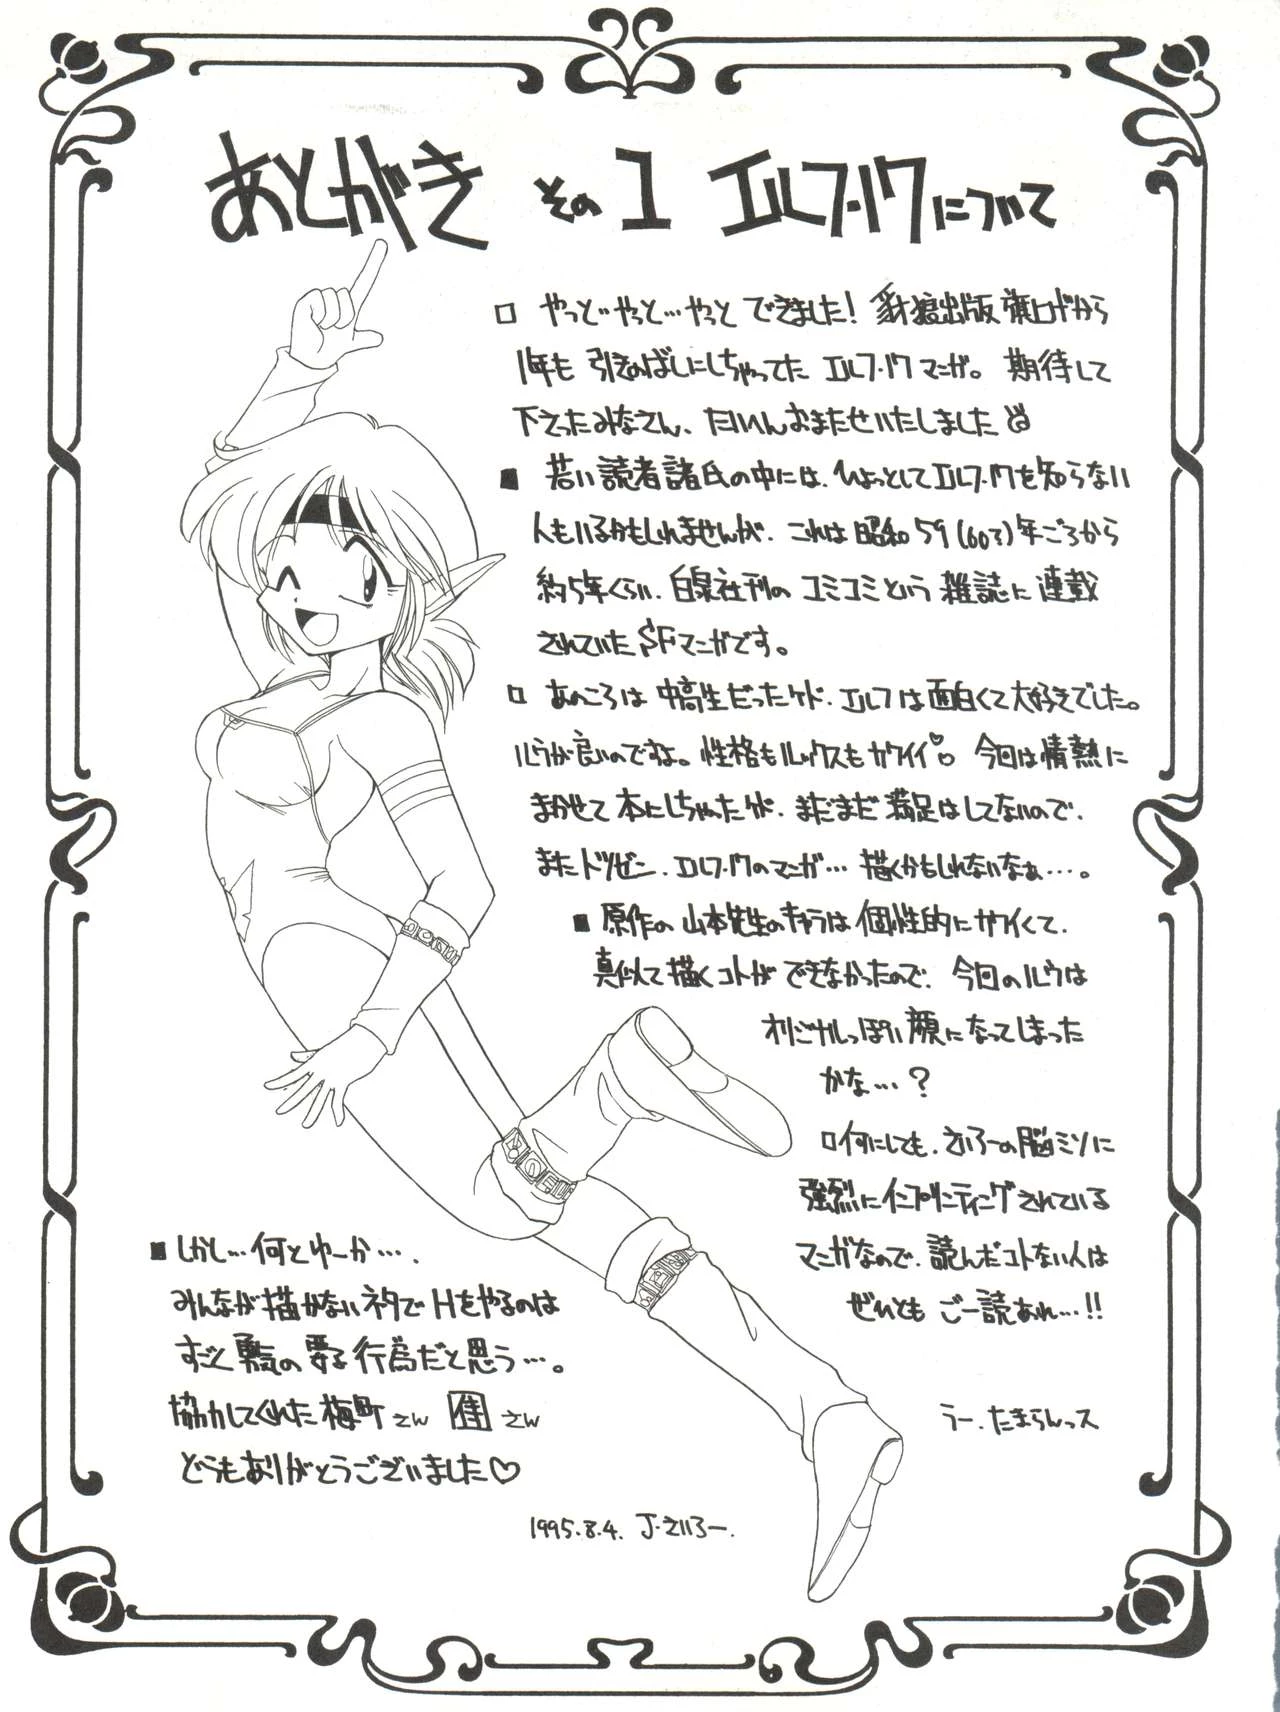 あとがき その1 エルフ・17について
□ やっと…やっと…やっと できました! 豺狼出版 旗上げから
1年も 引きのばしにしちゃってた エルフ・17マンガ。 期待して
下さったみなさん、たいへんおまたせいたしました
■ 若い読者諸氏の中には、ひょっとしてエルフ・17を知らない
人もいるかもしれませんが、これは昭和59(60?)年ごろから
約5年くらい、白泉社刊の コミコミという 雑誌に 連載
されていたSFマンガです。
□ あのころは 中高生だったケド、エルフは面白くて大好きでした。
ルウが良いのですよ。性格もルックスもカワイイ♡ 今回は情熱に
まかせて 本にしちゃったケド、まだまだ 満足はしてないので、
またトツゼン、エルフ・17のマンガ… 描くかもしれないなぁ…。
■ 原作の 山本先生のキャラは 個性的にカワイくて、
真似て描くコトが できなかったので、今回のルウは
オリジナルっぽい顔になってしまった
かな…?
□何にしても、さいろーの脳ミソに
強烈にインプリンティングされている
マンガなので、読んだコトない人は
ぜひとも ご一読あれ…!!
■しかし…何とゆーか…、
みんなが描かないネタでHをやるのは
すごく勇気の要る行為だと思う…。
協力してくれた梅町さん 佳さん
どうもありがとうございました♡
うー、たまらんっス
1995.8.4. J・さいろー.